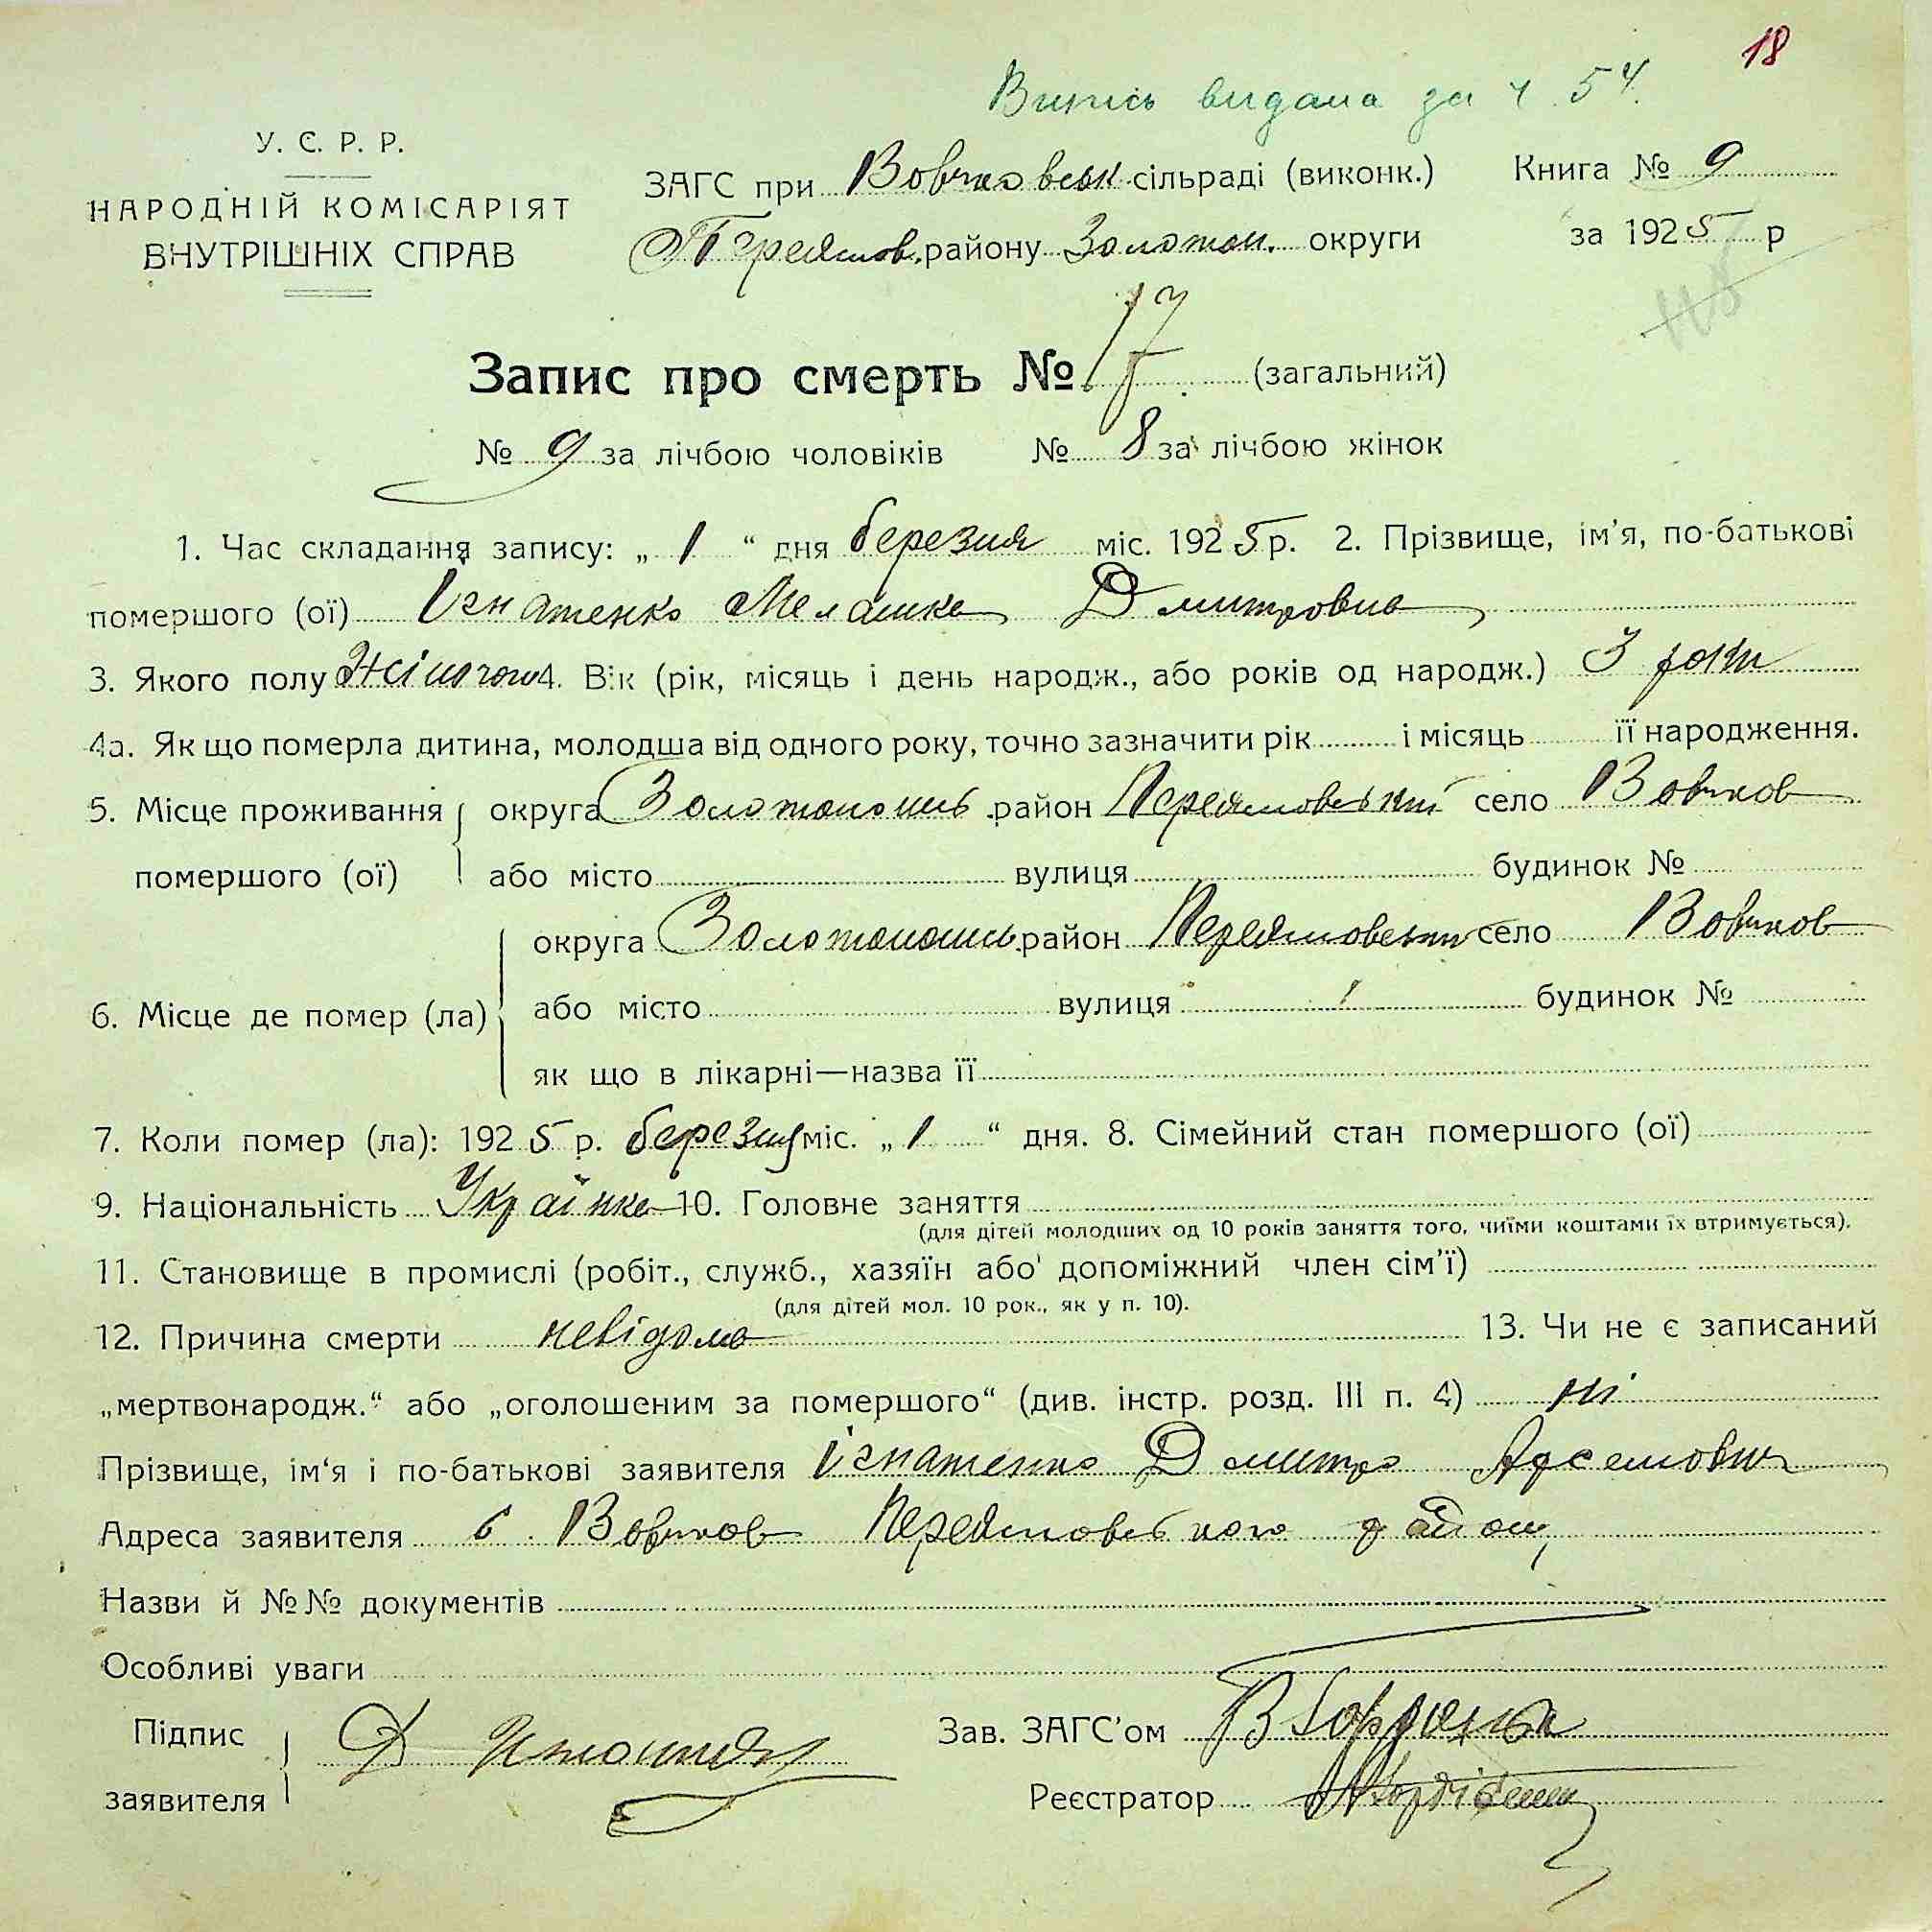 18
Випись видана за ч. 54.
У. С. Р. Р.
НАРОДНІЙ КОМІСАРІЯТ
ВНУТРІШНІХ СПРАВ
ЗАГС при Вовчковськ сільраді (виконк.)
Книга № 9
Переямов. району Золотон. округи
за 1925 р
Запис про смерть № 17 (загальний)
№ 9 за лічбою чоловіків № 8 за лічбою жінок
1. Час складання запису: „ 1 “ дня березня міс. 1925 р. 2. Прізвище, ім'я, по-батькові
помершого (ої) Ігнатенко Мелашка Дмитровна
3. Якого полу Жіночого 4. Вік (рік, місяць і день народж., або років од народж.) 3 роки
4а. Як що померла дитина, молодша від одного року, точно зазначити рік і місяць її народження.
5. Місце проживання округа Золотоношь район Переямовський село Вовчков
помершого (ої) або місто вулиця будинок №
округа Золотоношь район Переямовськи село Вовчков
6. Місце де помер (ла) або місто вулиця будинок №
як що в лікарні—назва її
7. Коли помер (ла): 1925 р. березня міс. „ 1 “ дня. 8. Сімейний стан помершого (ої)
9. Національність Українка 10. Головне заняття
(для дітей молодших од 10 років заняття того, чиїми коштами їх втримується).
11. Становище в промислі (робіт., служб., хазяїн або допоміжний член сім'ї)
(для дітей мол. 10 рок., як у п. 10).
12. Причина смерти невідома 13. Чи не є записаний
„мертвонародж.“ або „оголошеним за помершого“ (див. інстр. розд. III п. 4) ні
Прізвище, ім'я і по-батькові заявителя Ігнатенко Дмитро Арсемович
Адреса заявителя с. Вовчков Переямовського району
Назви й №№ документів
Особливі уваги
Підпис Д
заявителя
Зав. ЗАГС'ом
Реєстратор